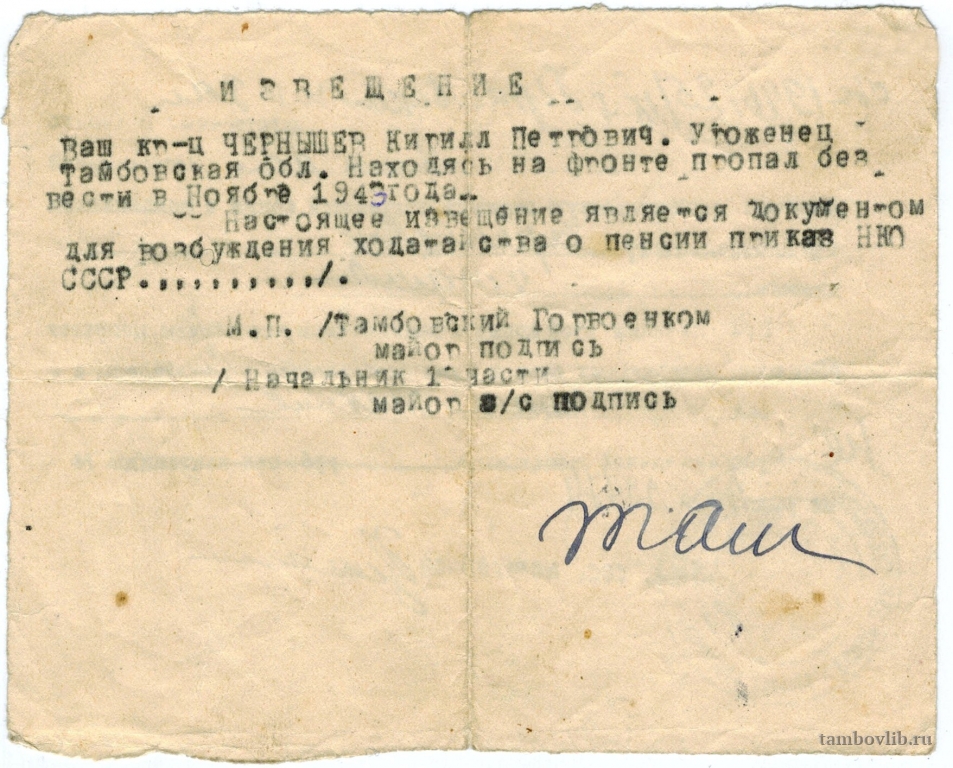 ИЗВЕЩЕНИЕ
Ваш кр-ц ЧЕРНЫШЕВ Кирилл Петрович. Уроженец
Тамбовская обл. Находясь на фронте пропал без
вести в Ноябре 1943года.
Настоящее извещение является документом
для возбуждения ходатайства о пенсии приказ НКО
СССР.,,,,,,,,,,/.
М.П. /Тамбовский Горвоенком
майор подпись
/ Начальник 1 части
майор а/с подпись
tambovlib.ru